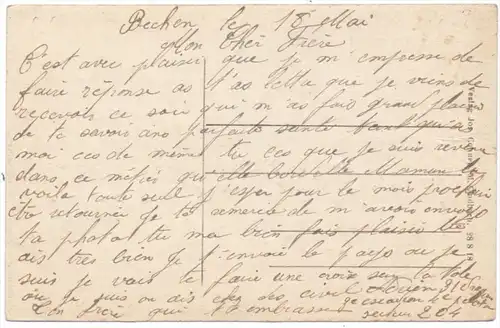 Bechen le 18 Mai
Mon Cher Frère
C'est avec plaisir que je m'empresse de
faire réponse as t'as lettre que je viens de
recevoir ce soir qui m'as fais grand plaisir
de te savoir ans parfaite santé tant qu'a
moi ces de même tu ces que je suis revenu
dans ce métier
voila toute seul j'esper pour le mois prochain
être retourner je te remercie de m'avoir envoyé
ta photo tu ma bien fais plaisir tu
ais très bien je t'envoie le pays ou je
suis je vais te faire une croix sur la
ou je suis ou ais chez des civil
Ton frère qui t'embrasse
204